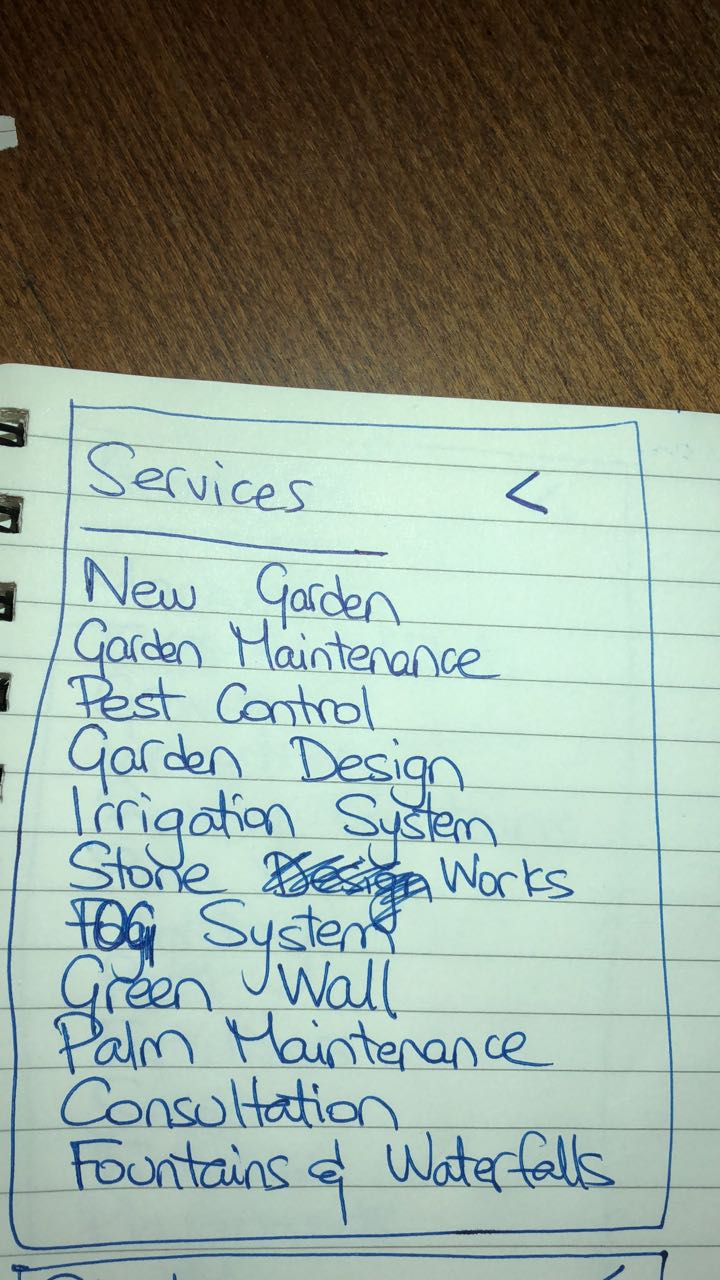 Services <
New Garden
Garden Maintenance
Pest Control
Garden Design
Irrigation System
Stone Works
FOG System
Green Wall
Palm Maintenance
Consultation
Fountains & Waterfalls